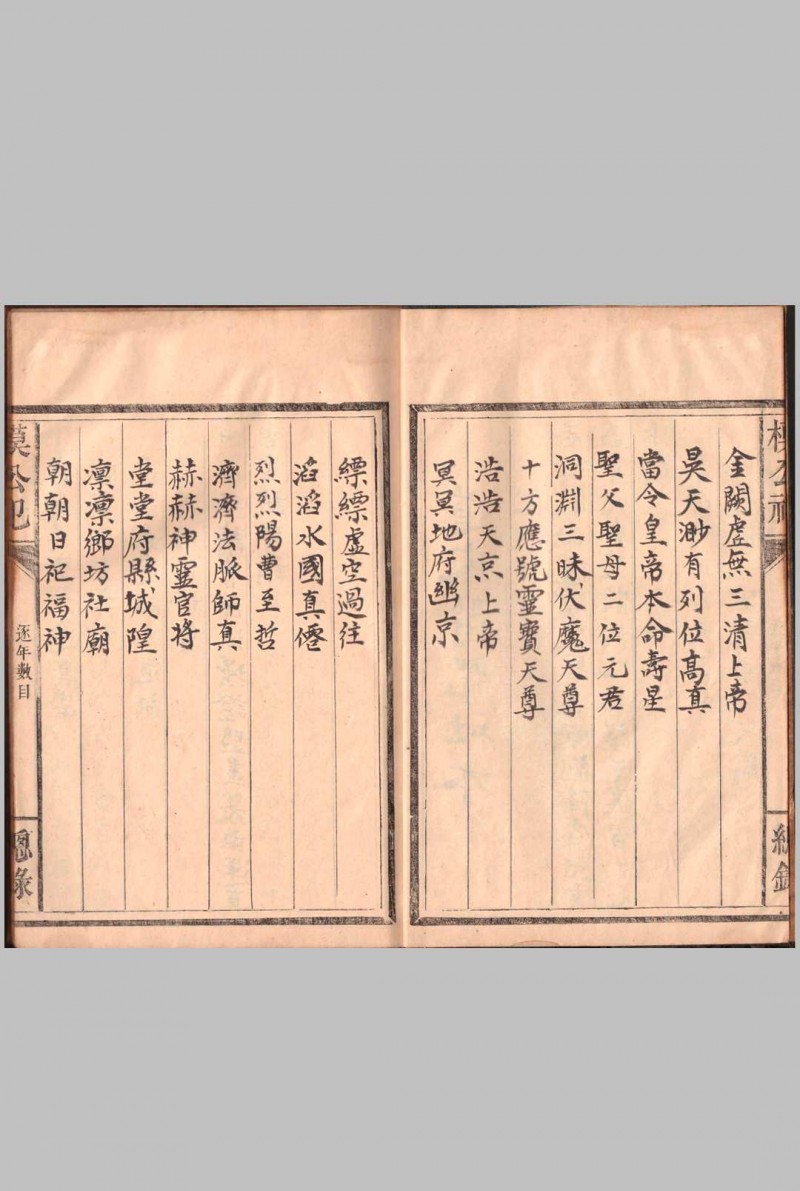 金闕虛無三清上帝
昊天渺有列位高真
當令皇帝本命壽星
聖父聖母二位元君
洞淵三昧伏魔天尊
十方應號靈寶天尊
浩浩天京上帝
冥冥地府幽京
縹縹虛空過往
滔滔水國真僊
烈烈陽曹至哲
濟濟法脈師真
赫赫神靈官將
堂堂府縣城隍
凛凛鄉坊社廟
朝朝日祀福神
逐年數目